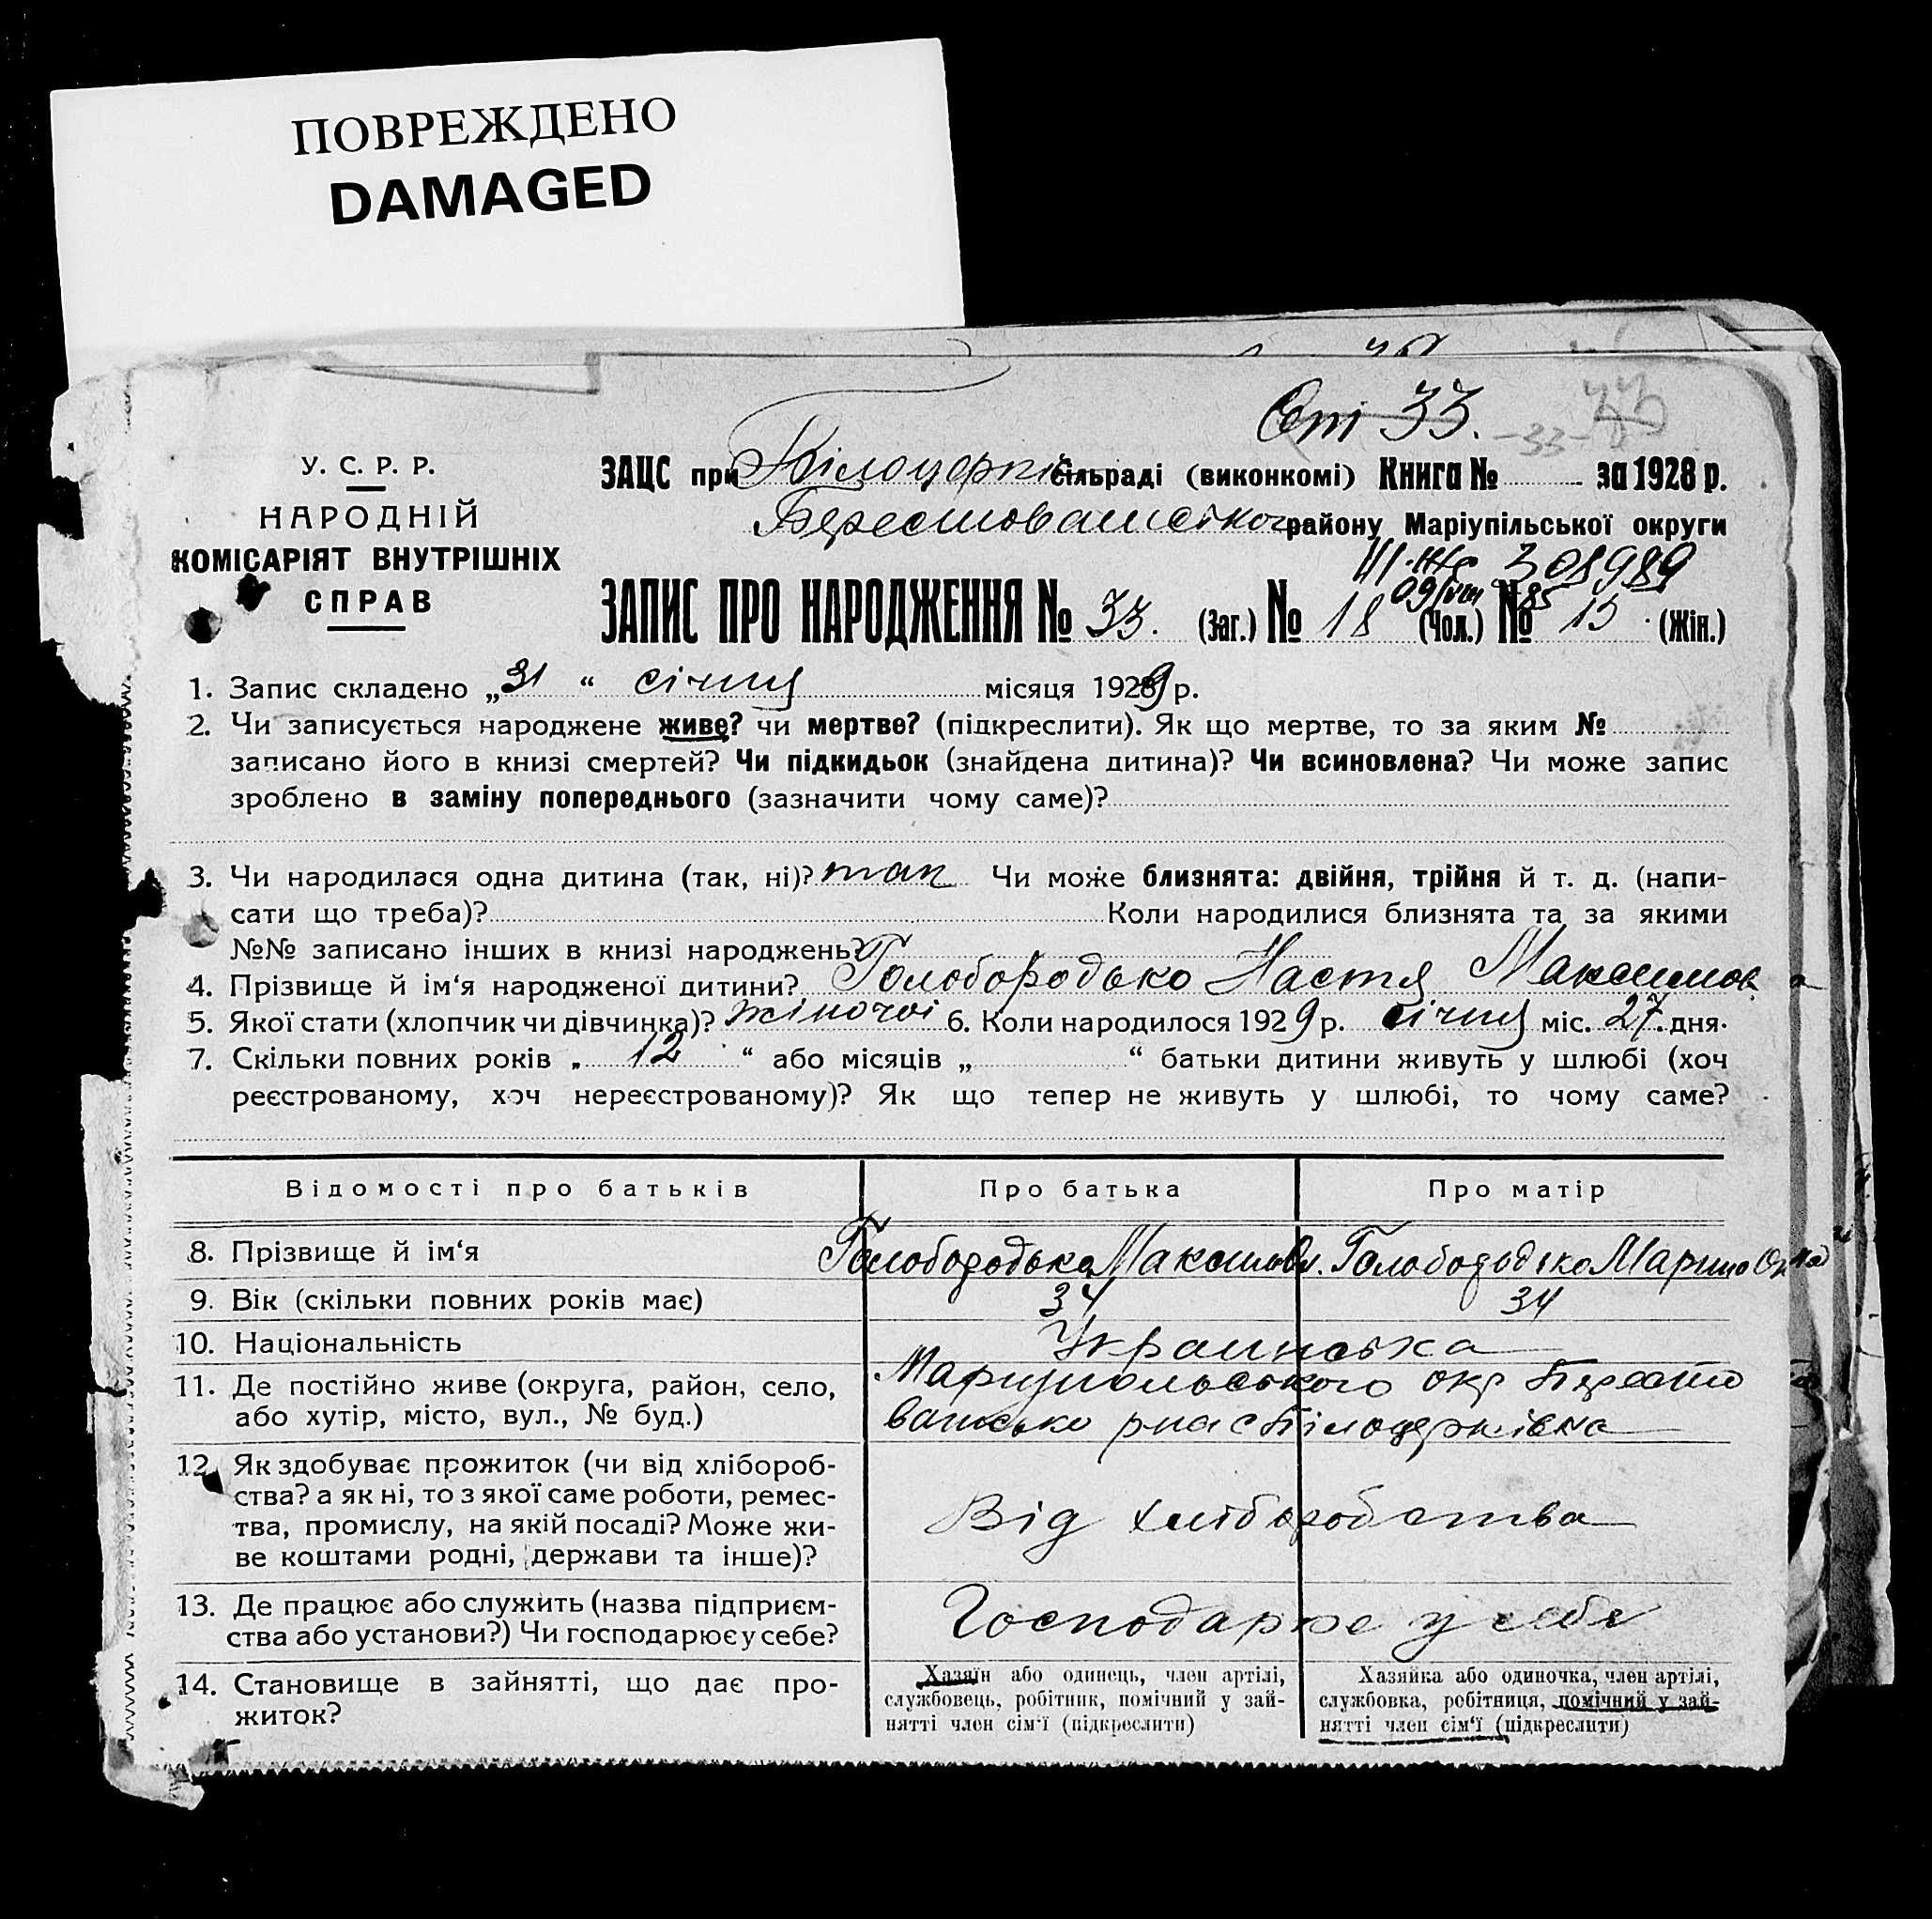 ПОВРЕЖДЕНО
DAMAGED
33.
-33-
У. С. Р. Р.
НАРОДНІЙ
КОМІСАРІЯТ ВНУТРІШНІХ
СПРАВ
ЗАЦС при сільраді (виконкомі) Книга № за 1928 р.
району Маріупільської округи
308989
ЗАПИС ПРО НАРОДЖЕННЯ № 33. (Заг.) № 18 (Чол.) № 15 (Жін.)
1. Запис складено „31“ січня місяця 1929 р.
2. Чи записується народжене живе? чи мертве? (підкреслити). Як що мертве, то за яким №
записано його в книзі смертей? Чи підкидьок (знайдена дитина)? Чи всиновлена? Чи може запис
зроблено в заміну попереднього (зазначити чому саме)?
3. Чи народилася одна дитина (так, ні)? так Чи може близнята: двійня, трійня й т. д. (напи-
сати що треба)? Коли народилися близнята та за якими
№№ записано інших в книзі народжень?
4. Прізвище й ім‘я народженої дитини? Голобородько Настя Максимов а
5. Якої стати (хлопчик чи дівчинка)? жіночоі 6. Коли народилося 1929 р. січня міс. 27. дня.
7. Скільки повних років „ 12 “ або місяців „ “ батьки дитини живуть у шлюбі (хоч
реєстрованому, хоч нереєстрованому)? Як що тепер не живуть у шлюбі, то чому саме?
Відомості про батьків Про батька Про матір
8. Прізвище й ім‘я Голобородько Голобородько
9. Вік (скільки повних років має) 34 34
10. Національність Украинська
11. Де постійно живе (округа, район, село, Мариупольського окр Бересто
або хутір, місто, вул., № буд.) Білоцерківка
12. Як здобуває прожиток (чи від хлібороб-
ства? а як ні, то з якої саме роботи, ремес-
тва, промислу, на якій посаді? Може жи- Від хліборобства
ве коштами родні, держави та інше)?
13. Де працює або служить (назва підприєм- Господарює у себе
ства або установи?) Чи господарює у себе?
14. Становище в зайнятті, що дає про-
житок?
Хазяїн або одинець, член артілі,
службовець, робітник, помічний у зай-
нятті член сім‘ї (підкреслити)
Хазяйка або одиночка, член артілі,
службовка, робітниця, помічний у зай-
нятті член сім‘ї (підкреслити)